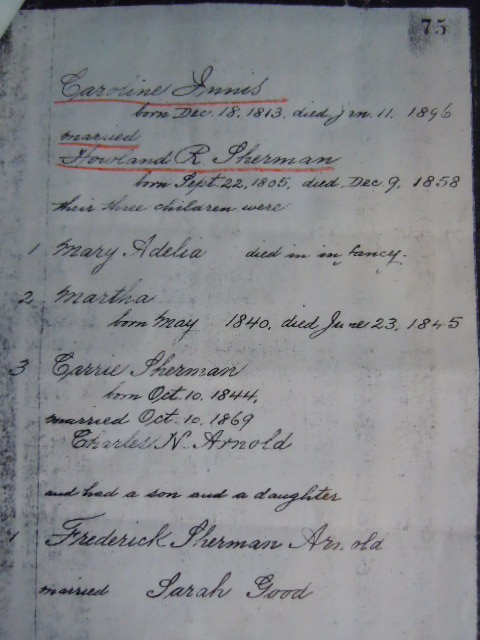 75
Caroline Innis
born Dec. 18, 1813, died Jan. 11, 1896
married
Howland R. Sherman
born Sept. 22, 1805, died Dec. 9, 1858
their three children were
1 Mary Adelia died in infancy.
2 Martha
born May 1840, died June 23, 1845
3 Carrie Sherman
born Oct. 10, 1844,
married Oct. 10, 1869
Charles N. Arnold
and had a son and a daughter
1 Frederick Sherman Arnold
married Sarah Good